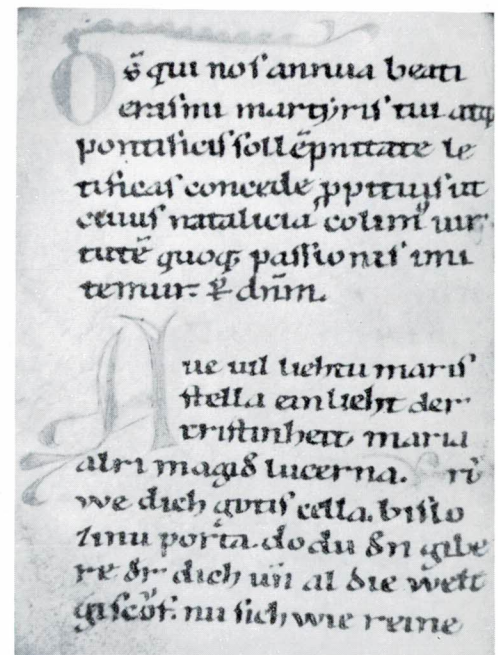 Ds̄ qui nos annua beati
erasmi martyris tui atq;
pontificis sollēpnitate le
tificas concede ꝓpitius ut
cuius natalicia colimꝰ uir
tutē quoq; passionis imi
temur. ꝑ dnm̄.
Aue uil liehtu maris
stella ein lieht der
cristinheit, maria
alri magid lucerna.
we dich gotis cella. bislo
zinu porta. do du dn gibe
re dr dich uñ al die welt
giscof. nu sich wie reine